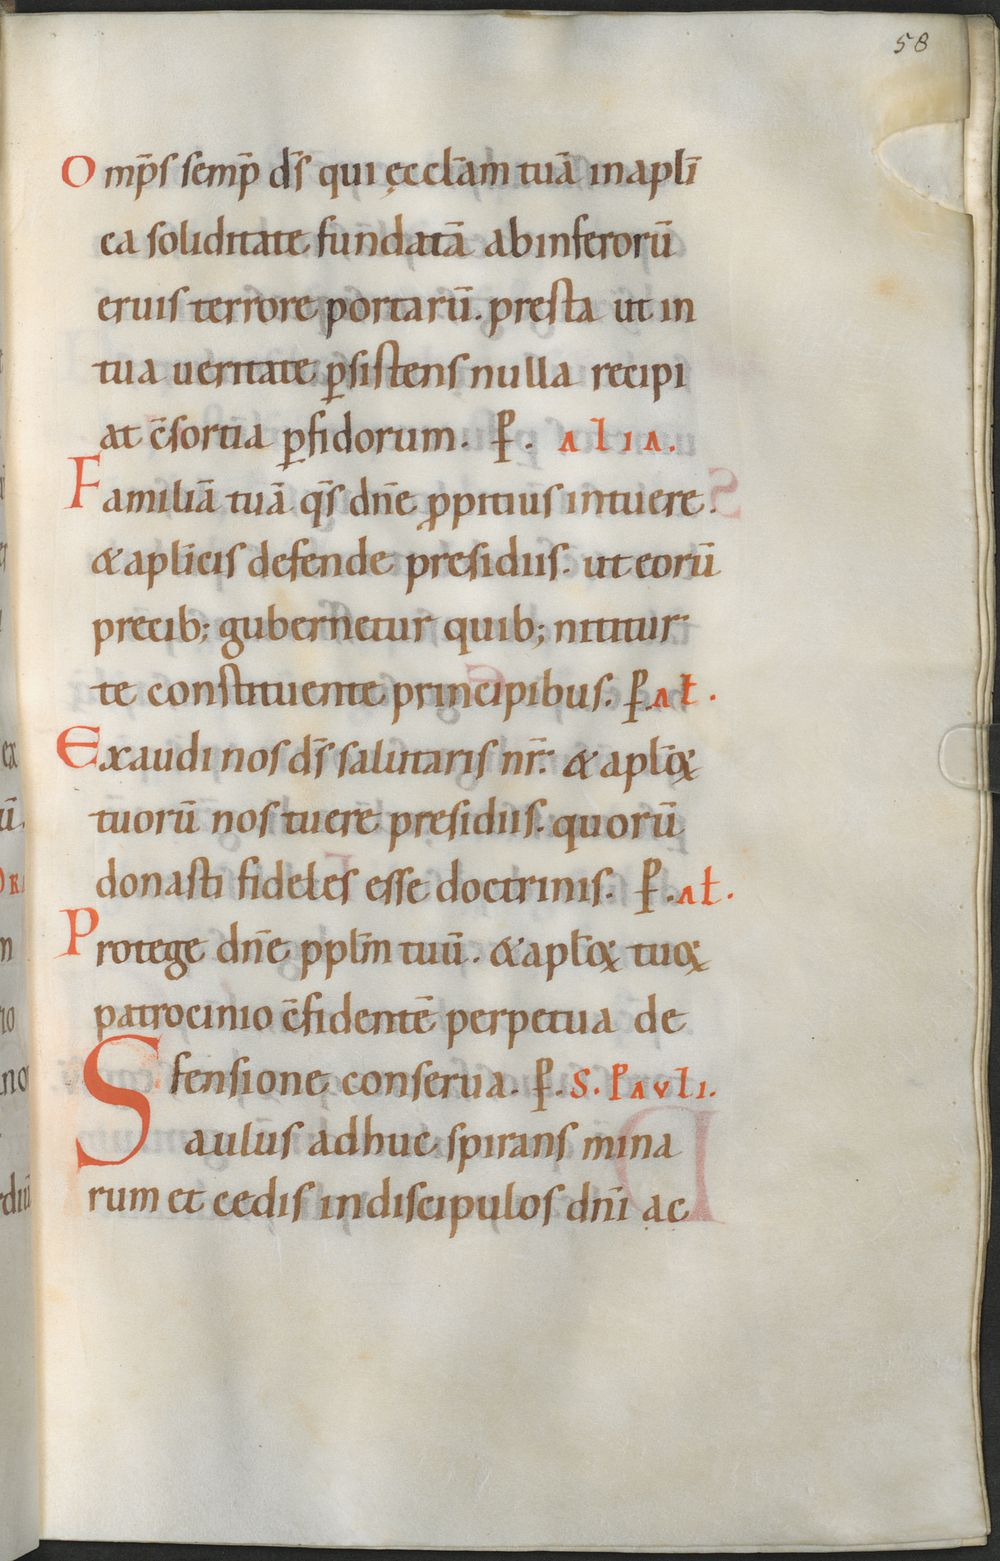 58
Omp̄s semp̄ ds̄ qui ęcclām tuā in aplī
ca soliditate fundatā ab inferorū
eruis terrore portarū. presta ut in
tua ueritate ꝑsistens nulla recipi
at c̄sortia ꝑfidorum. P̄. ALIA.
Familiā tuā qs̄ dn̄e ꝓpitius intuere.
& aplīcis defende presidiis. ut eorū
precib; gubernetur quib; nititur
te constituente principibus. P̄. Al̄.
Exaudi nos ds̄ salutaris nr̄. & aplōꝝ
tuorū nos tuere presidiis. quorū
donasti fideles esse doctrinis. P̄. Al̄.
Protege dn̄e pplm̄ tuū. & aplōꝝ tuoꝝ
patrocinio c̄fidentē perpetua de
fensione conserua. P̄. S. PAVLI.
Saulus adhuc spirans mina
rum et cedis in discipulos dn̄i ac